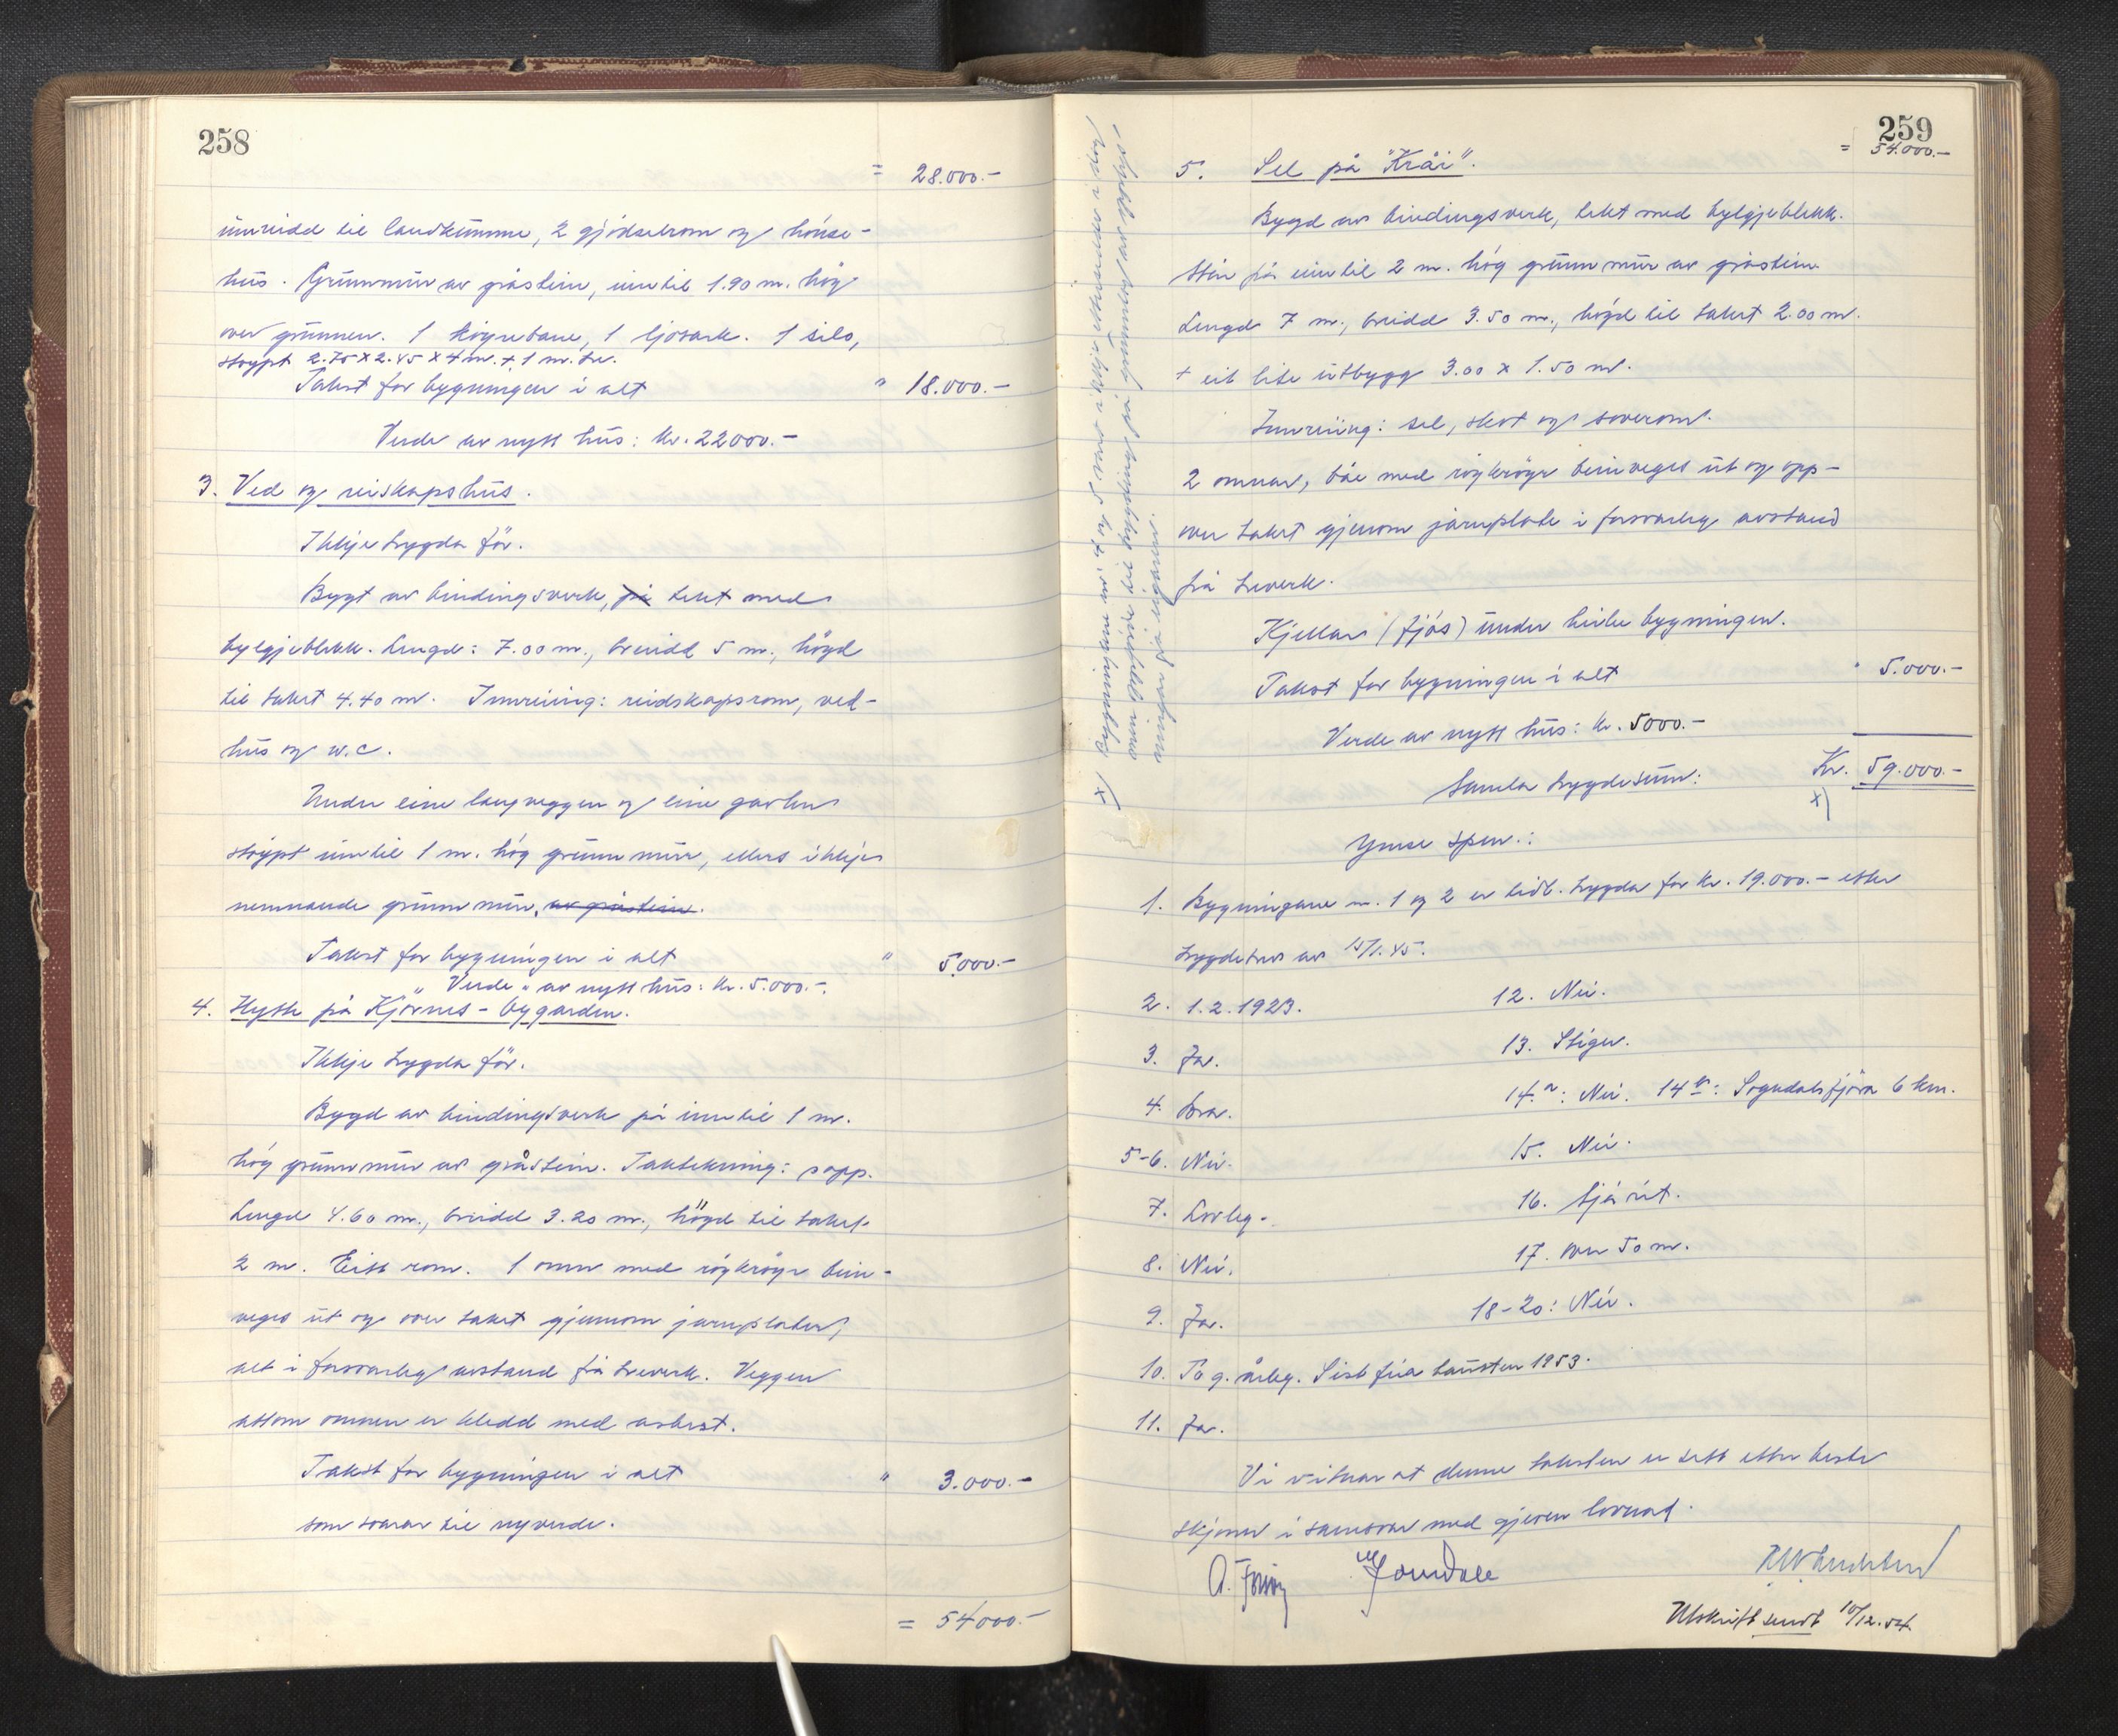 258
= 28.000.-
innreidd til landkumme, 2 gjødselrom og hønse-
hus. Grunnmur av gråstein, inntil 1.90 m. høg
over grunnen. 1 køyrebane, 1 ljosark. 1 silo,
støypt 2.75 x 2.45 x 4 m. + 1 m. tre.
Takst for bygningen i alt " 18.000.-
Verde av nytt hus: kr. 22000.-
3. Ved og reiskapshus.
Ikkje trygda før.
Bygt av bindingsverk, på tekt med
bylgjeblekk. Lengd: 7.00 m., breidd 5 m., høgd
til taket 4.40 m. Innreiing: reidskapsrom, ved-
hus og w.c.
Under eine langveggen og eine gavlen
støypt inntil 1 m. høg grunnmur, ellers ikkje
nemnande grunnmur, av gråstein.
Takst for bygningen i alt " 5.000.-
" Verde " av nytt hus: kr. 5.000.-.
4. Hytte på Kjørnes-bygarden.
Ikkje trygda før.
Bygd av bindingsverk på inntil 1 m.
høg grunnmur av gråstein. Taktekning: papp.
Lengd 4.60 m., breidd 3.20 m., høgd til taket
2 m. Eitt rom. 1 omn med røykrøyr bein-
veges ut og over taket gjennom jarnplater,
alt i forsvarleg avstand frå treverk. Veggen
attom omnen er kledd med asbest.
Takst for bygningen i alt " 3.000.-
som svarar til nyverde.
= 54000.-
259
= 54.000.-
5. Sel på "Kråi".
Bygd av bindingsverk, tekt med bylgjeblekk.
Står på inntil 2 m. høg grunnmur av gråstein.
Lengd 7 m., breidd 3.50 m., høgd til taket 2.00 m.
+ eit lite utbygg 3.00 x 1.50 m.
Innreiing: sel, skot og soverom.
2 omnar, båe med røykrøyr beinveges ut og opp-
over taket gjenom jarnplate i forsvarleg avstand
frå treverk.
Kjellar (fjøs) under heile bygningen.
Takst for bygningen i alt " 5.000.-
Verde av nytt hus: kr. 5000.-
Samla trygdesum: Kr. 59.000.-
x)
Ymse spm.:
1. Bygningane nr. 1 og 2 er tidl. trygda for kr. 19.000.- etter
trygdebrev av 15/1.45.
2. 1.2.1923.
3. Ja.
4. Bra.
5-6. Nei.
7. Lovleg.
8. Nei.
9. Ja.
10. To g. årleg. Sist feia hausten 1953.
11. Ja.
12. Nei.
13. Stigar.
14.a: Nei. 14 b: Sogndalsfjøra 6 km.
15. Nei.
16. Sjå rit.
17. over 50 m.
18-20: Nei.
Vi vitnar at denne taksten er sett etter beste
skjønn i samsvar med gjeven lovnad.
Utskrift sendt 10/12.54.
x) Bygningane nr. 4 og 5 vart ikkje i dag
men oppførde til på grunnlag av
ningar frå eigaren.